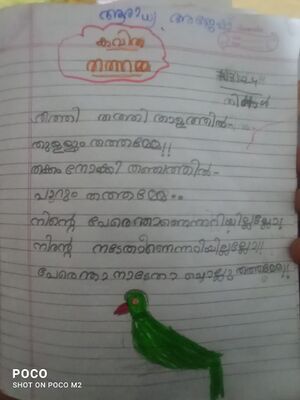 ആരാധ്യ അജേഷ്
കവിത
തത്തമ്മ
തത്തി തത്തി താളത്തിൽ-
തുള്ളും തത്തമ്മേ!!
തക്കം നോക്കി തഞ്ചത്തിൽ-
പാറും തത്തമ്മേ..
നിന്റെ പേരെന്താണെന്നറിയില്ലല്ലോ!
നിന്റെ നാടേതാണെന്നറിയില്ലല്ലോ!!
പേരെന്താ നാടേതാ ചൊല്ലു തത്തമ്മേ!!
POCO
SHOT ON POCO M2